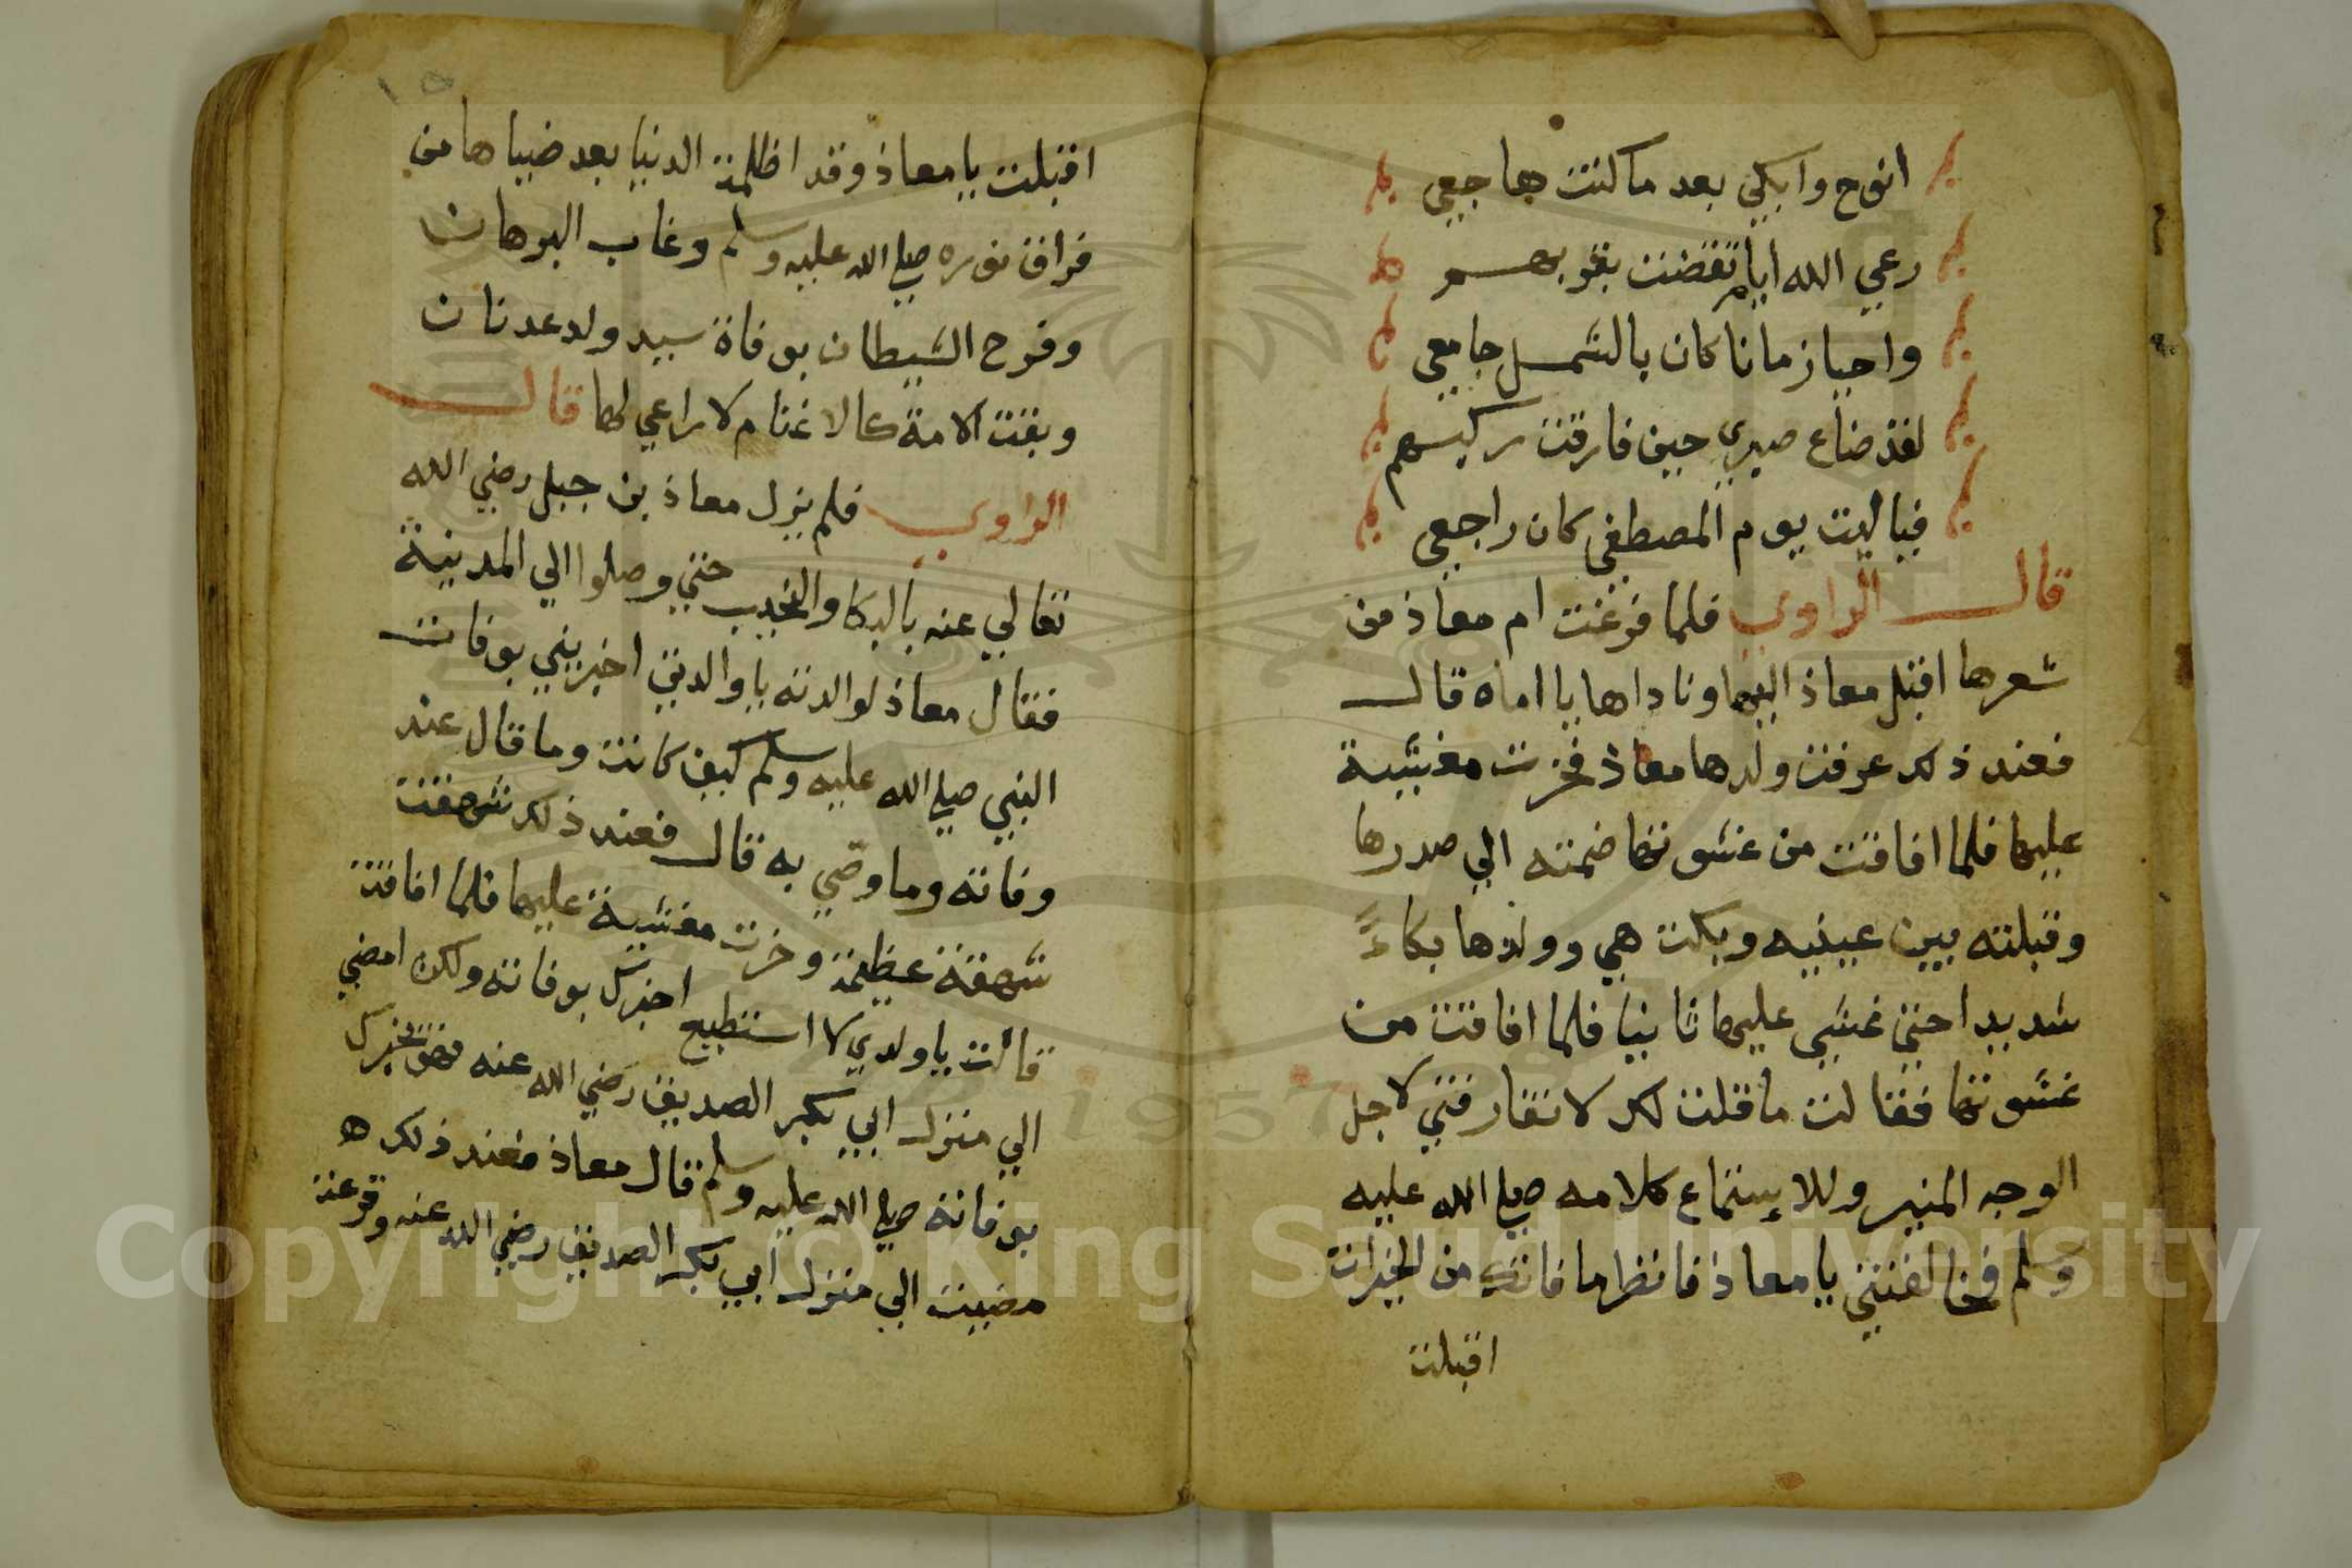 انوح وابكي بعد ما كنت هاجعي
رعي الله ايام تقضت بقربهم
واحيا زمانا كان بالشمل جامعي
لقد ضاع صبري حين فارقت ركبهم
فيا ليت يوم المصطفى كان راجعي
قال الراوي فلما فرغت ام معاذ من
شعرها اقبل معاذ اليها وناداها يا اماه قال
فعند ذلك عرفت ولدها معاذ فخرت مغشية
عليها فلما افاقت من غشوتها ضمته الي صدرها
وقبلته بين عينيه وبكت هي وولدها بكاءً
شديدا حتي غشي عليها ثانيا فلما افاقت من
غشوتها فقالت ما قلت لك لا تفارقني لاجل
الوجه المنير وللاستماع كلامه صلي الله عليه
وسلم فخالفتني يا معاذ فانظر ما فاتك من الخيرات
اقبلت
١٥
اقبلت يا معاذ وقد اظلمة الدنيا بعد ضياها من
فراق نوره صلي الله عليه وسلم وغاب البرهان
وفرح الشيطان بوفاة سيد ولد عدنان
وبقت الامة كالاغنام لا راعي لها قال
الراوي فلم يزل معاذ بن جبل رضي الله
تعالي عنه بالبكا والنحيب حتي وصلوا الي المدينة
فقال معاذ لوالدته يا والدتي اخبريني بوفات
النبي صلي الله عليه وسلم كيف كانت وما قال عند
وفاته وما وصّي به قال فعند ذلك شهقت
شهقة عظيمة وخرت مغشية عليها فلما افاقت
قالت يا ولدي لا استطيع اخبرك بوفاته ولكن امضي
الي منزل ابي بكر الصديق رضي الله عنه فهو يخبرك
بوفاته صلي الله عليه وسلم قال معاذ فعند ذلك ه
مضيت الي منزل ابي بكر الصديق رضي الله عنه وقرعت
Copyright © King Saud University
1957